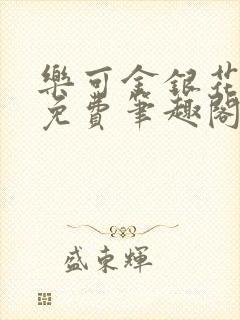 樂可金銀花
免費筆趣閣
盛東輝